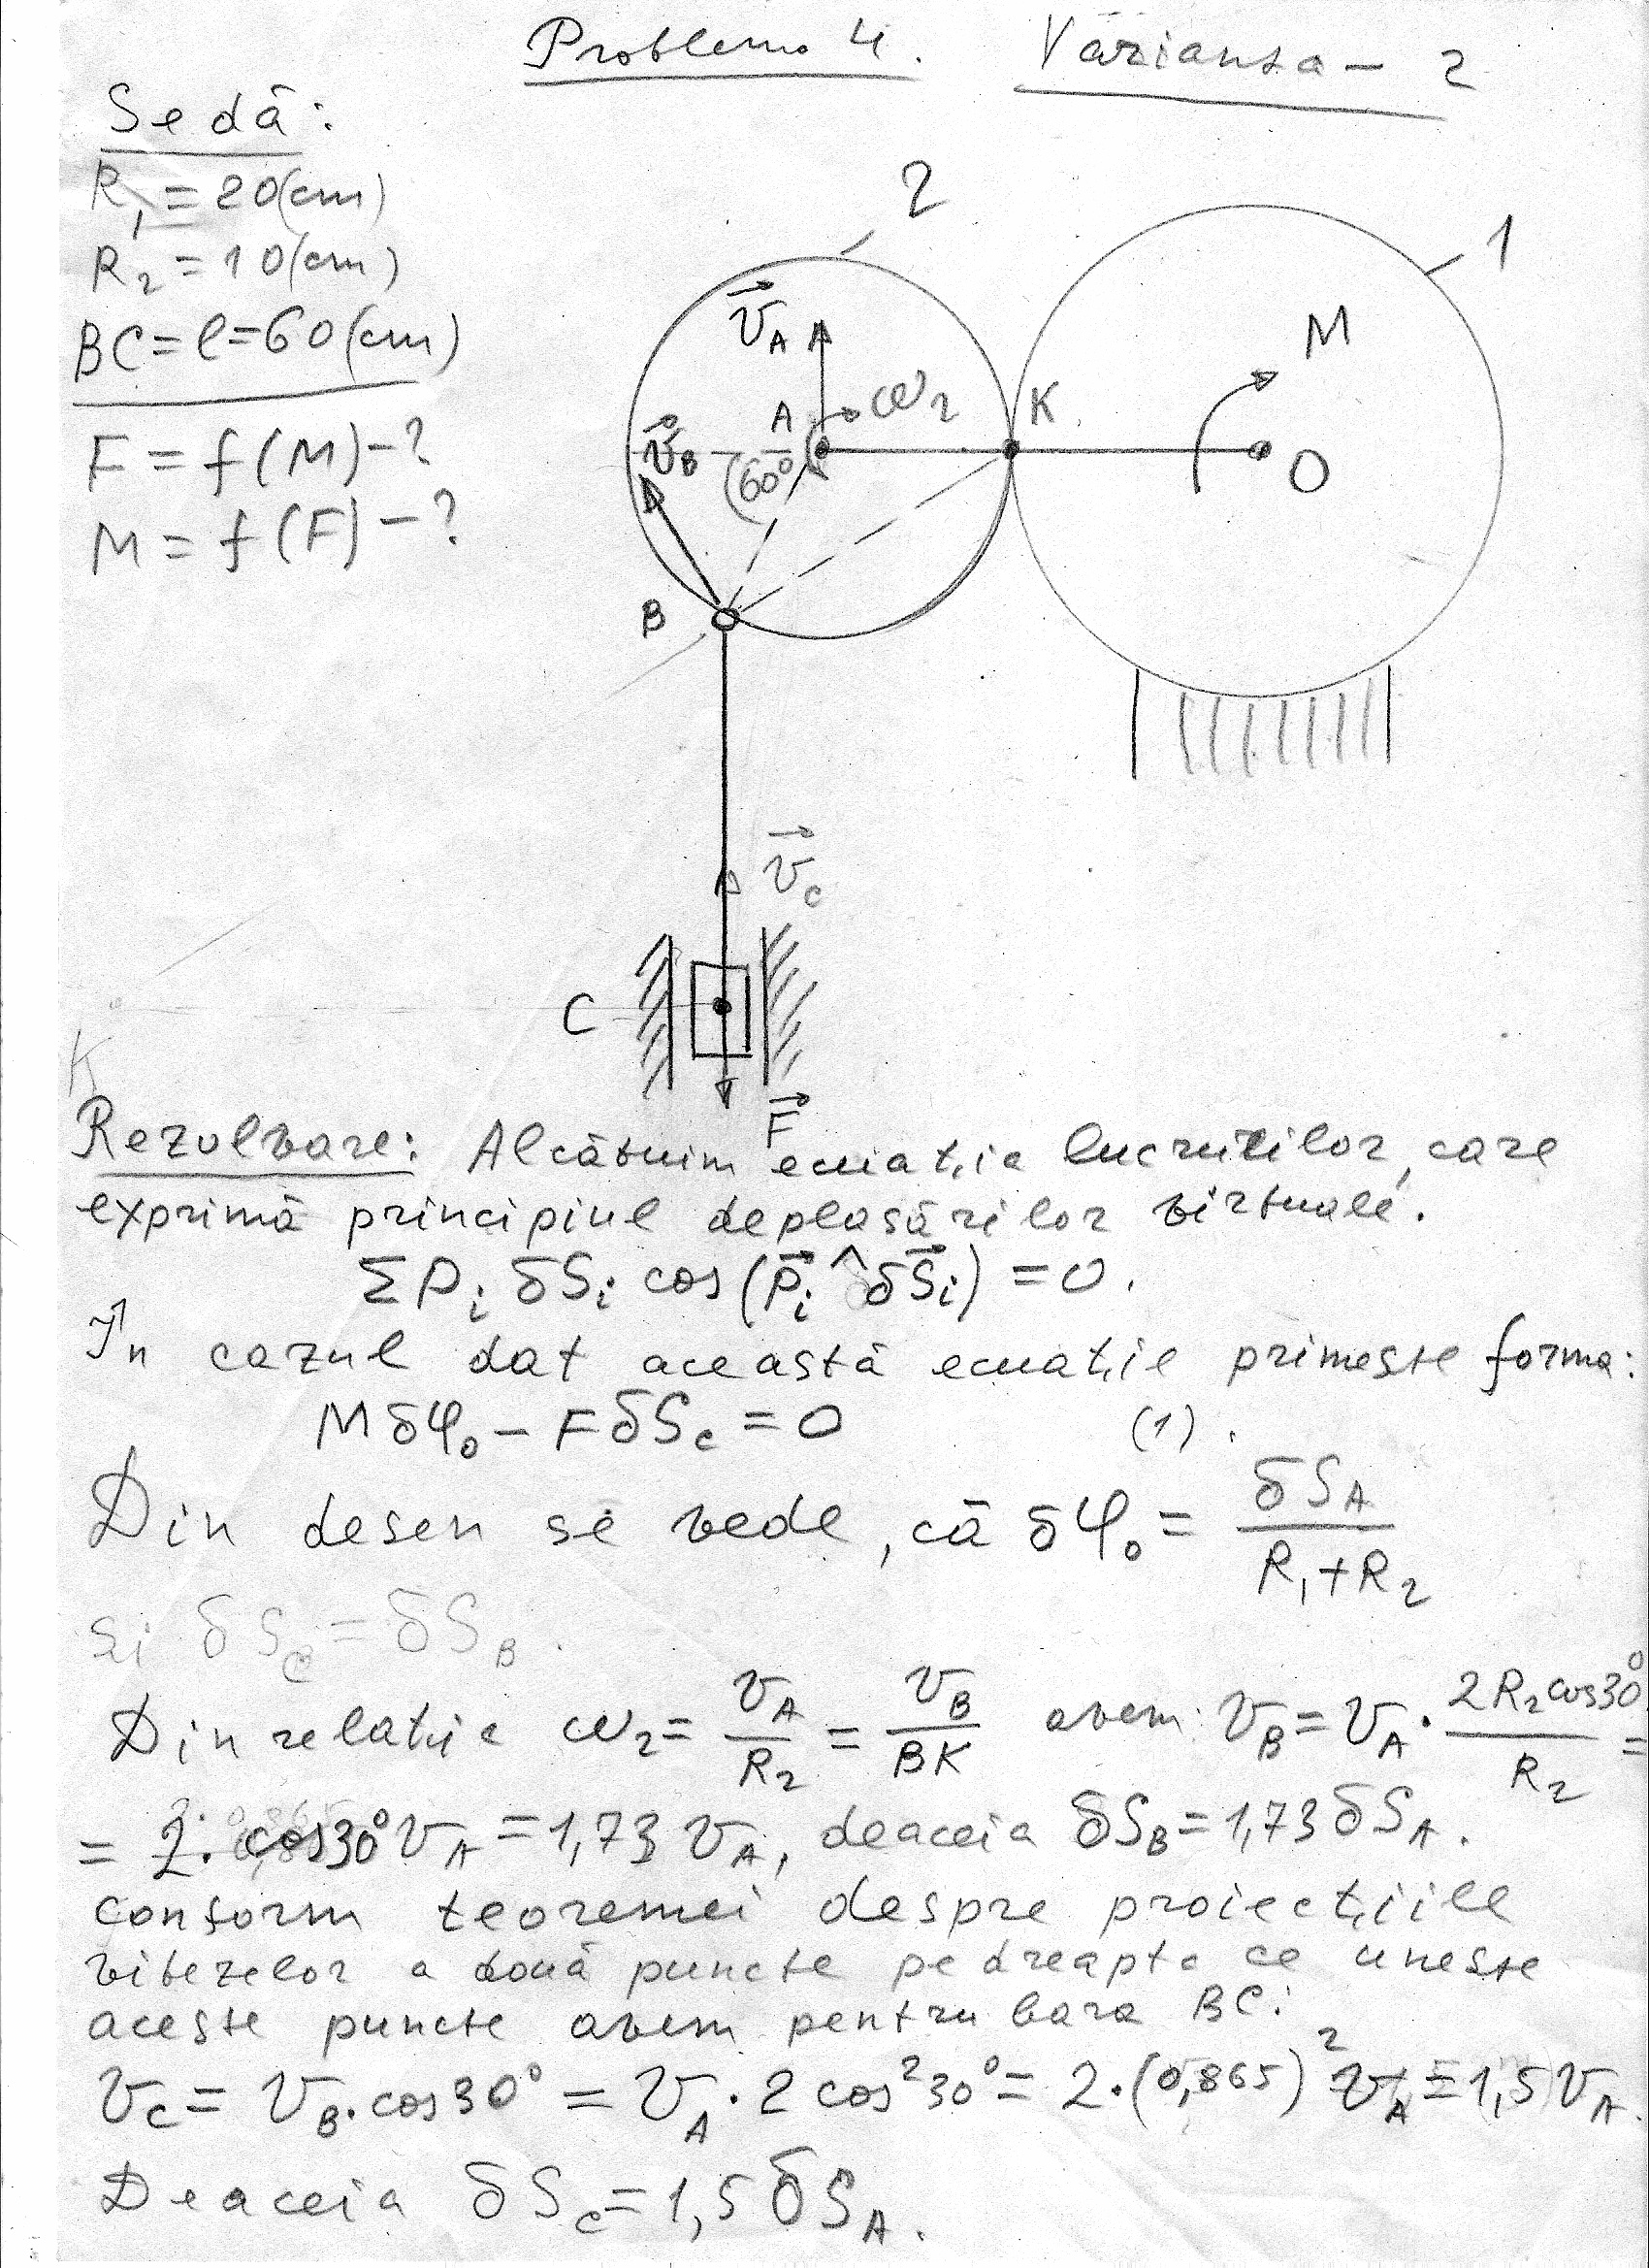 Problema 4. Varianta - 2
Se dă:
R₁ = 20(cm)
R₂ = 10(cm)
BC = l = 60(cm)
F = f(M) - ?
M = f(F) - ?
2
1
v⃗A
M
A
ω₂
K
v⃗B
60°
O
B
v⃗c
C
F⃗
K
Rezolvare: Alcătuim ecuația lucrurilor, care
exprimă principiul deplasărilor virtuale.
ΣPᵢ δSᵢ cos(P⃗ᵢ ^ δS⃗ᵢ) = 0.
În cazul dat această ecuație primește forma:
Mδφ₀ - FδSc = 0 (1).
Din desen se vede, că δφ₀ = δSA / (R₁+R₂)
și δSc = δSB.
Din relația ω₂ = vA/R₂ = vB/BK avem: vB = vA · 2R₂cos30°/R₂ =
= 2·cos30° vA = 1,73 vA, deaceia δSB = 1,73 δSA.
conform teoremei despre proiecțiile
vitezelor a două puncte pe dreapta ce unește
aceste puncte avem pentru bara BC:
vc = vB·cos30° = vA·2cos²30° = 2·(0,865)² vA = 1,5 vA.
Deaceia δSc = 1,5 δSA.